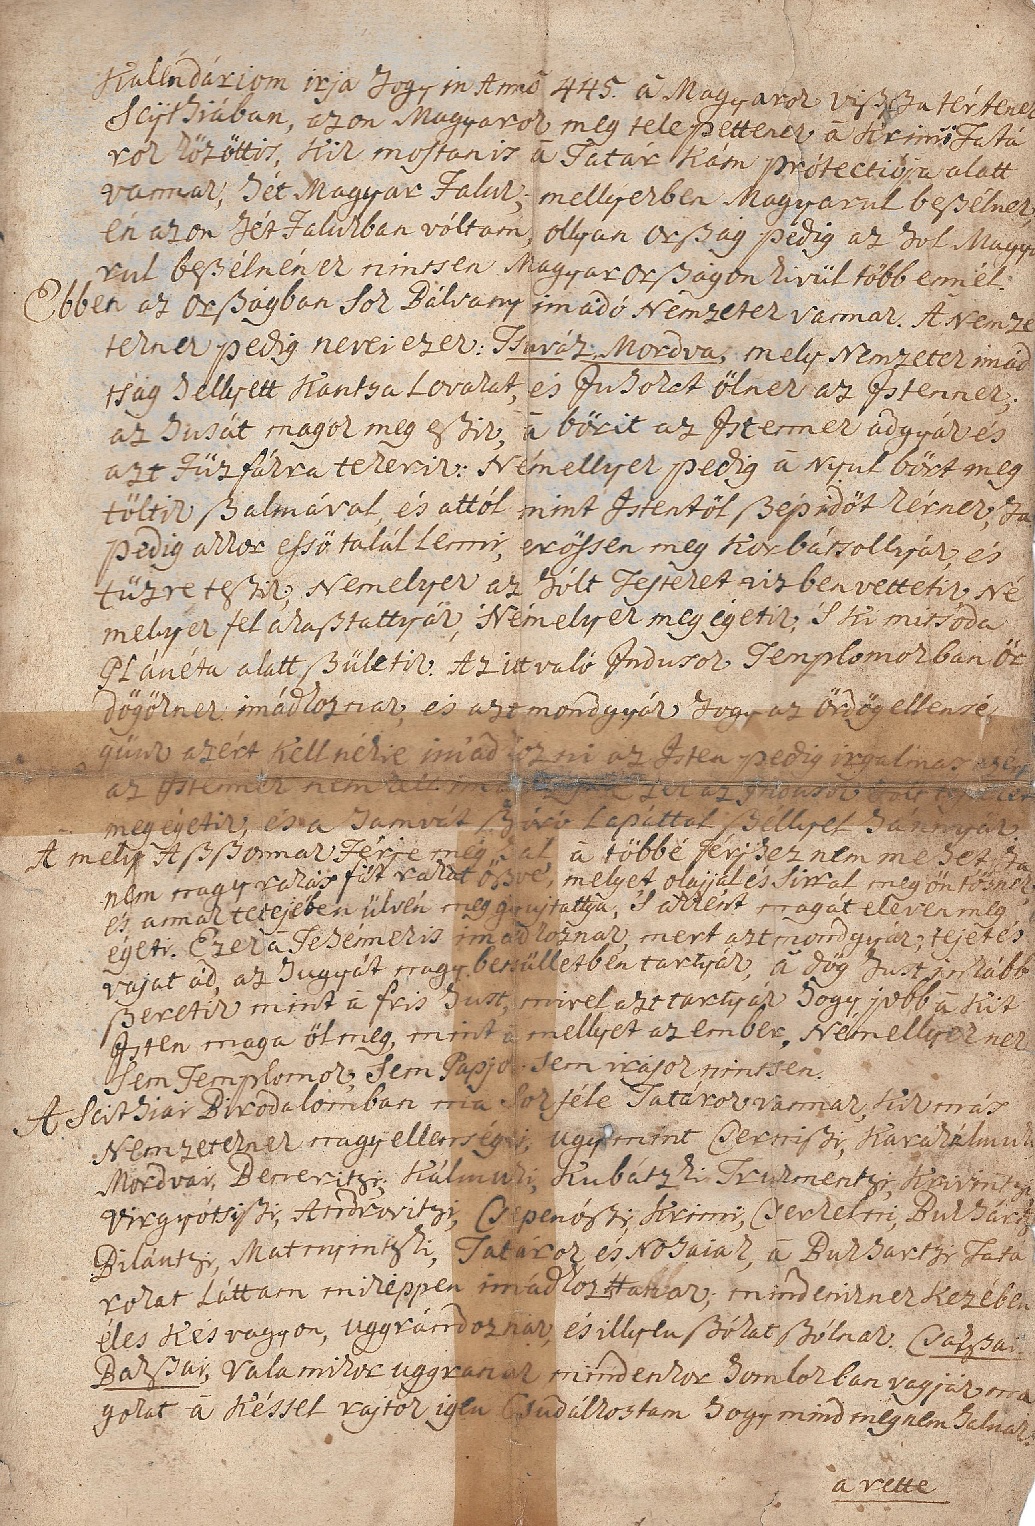 Kaléndáriom irja hogy in Anno 445. á Magyarok viszsza tértenek
Scijthiában, azon Magyarok meg telepettenek á Krimi Tatá
rok közöttis, kik mostanis á Tatár Kám protectioja alatt
vannak, hét Magyar Faluk, mellyekben Magyarul beszélnek
én azon hét Falukban vóltam, ollyan ország pedig az hol Magya
rul beszélnének nintsen Magyar országon kivül több ennél.
Ebben az országban sok Bálvany imádó Némzetek vannak. A Nemze
teknek pedig nevei ezek: Tsuváz, Mordva, mely Nemzetek imád
tság hellyett Kantza Lovakat, és Juhokat ölnek az Istennek,
az husát magok meg eszik, á bőrit az Istennek adgyák és
azt Füzfákra tekerik: Némellyek pedig á Nyul bőrt meg
töltik szalmával, és attól mint Istentöl szép időt kérnek, ha
pedig akkor esső talál lenni, erőssen meg Korbátsollyák, és
tüzre teszik; Nemelyek az hólt Testeket vizben vettetik, Né
melyek fel akasztattyák, Némelyek meg égetik, 's Ki mitsóda
Plánéta alatt születik. Az itt való Indusok Templomokban ör
dögöknek imádkoznak, és azt mondgyák hogy az ördög ellensé
günk azért kell nékie imádkozni az Isten pedig irgalmas azért
az Istennek nem kell az Indusok hólt testeket
meg égetik, és a hamvát szóró Lapáttal széllyel hánnyák
A mely Aszszonnak Férje még hal, á többé férjhez nem mehet, ha
nem nagy rakás fát rakat öszve, melyet olajjal és sirral meg öntöznek
és annak tetejében ülvén meg gyujtattya, 's akként magát eleven meg
égeti. Ezek á Tehénnek is imádkoznak, mert azt mondgyák, tejet és
vajat ád, az hugyát nagy betsülletben tartyák, á dög hust inkább
szeretik mint á fris hust, mivel azt tartyák hogy jobb á Kit
Isten maga öl meg, mint á mellyet az ember, Némellyeknek
sem Templomok, sem Papjok sem irások nintsen.
A Scithiai Birodalomban ma sok féle Tatárok vannak, kik más
Nemzeteknek nagy ellenségei, ugymint Cseremiszi, Karakálmuk
Mordvai, Kálmuki, Kubátzki Trukmentzi,
Andrevitzi, Krimi,
Tatárok és Nohaiak, á Buhartzi Tatá
rokat Láttam miképpen imádkoztanak; mindeniknek Kezében
éles Kés vagyon, ugrándoznak, és illyen szókat szólnak. Csakszai
Bakszai, valamikor ugranak mindenkor homlokban vagják ma
gokat á Késsel rajtok igen Csudálkoztam hogy mind meg nem halnak.
a vette